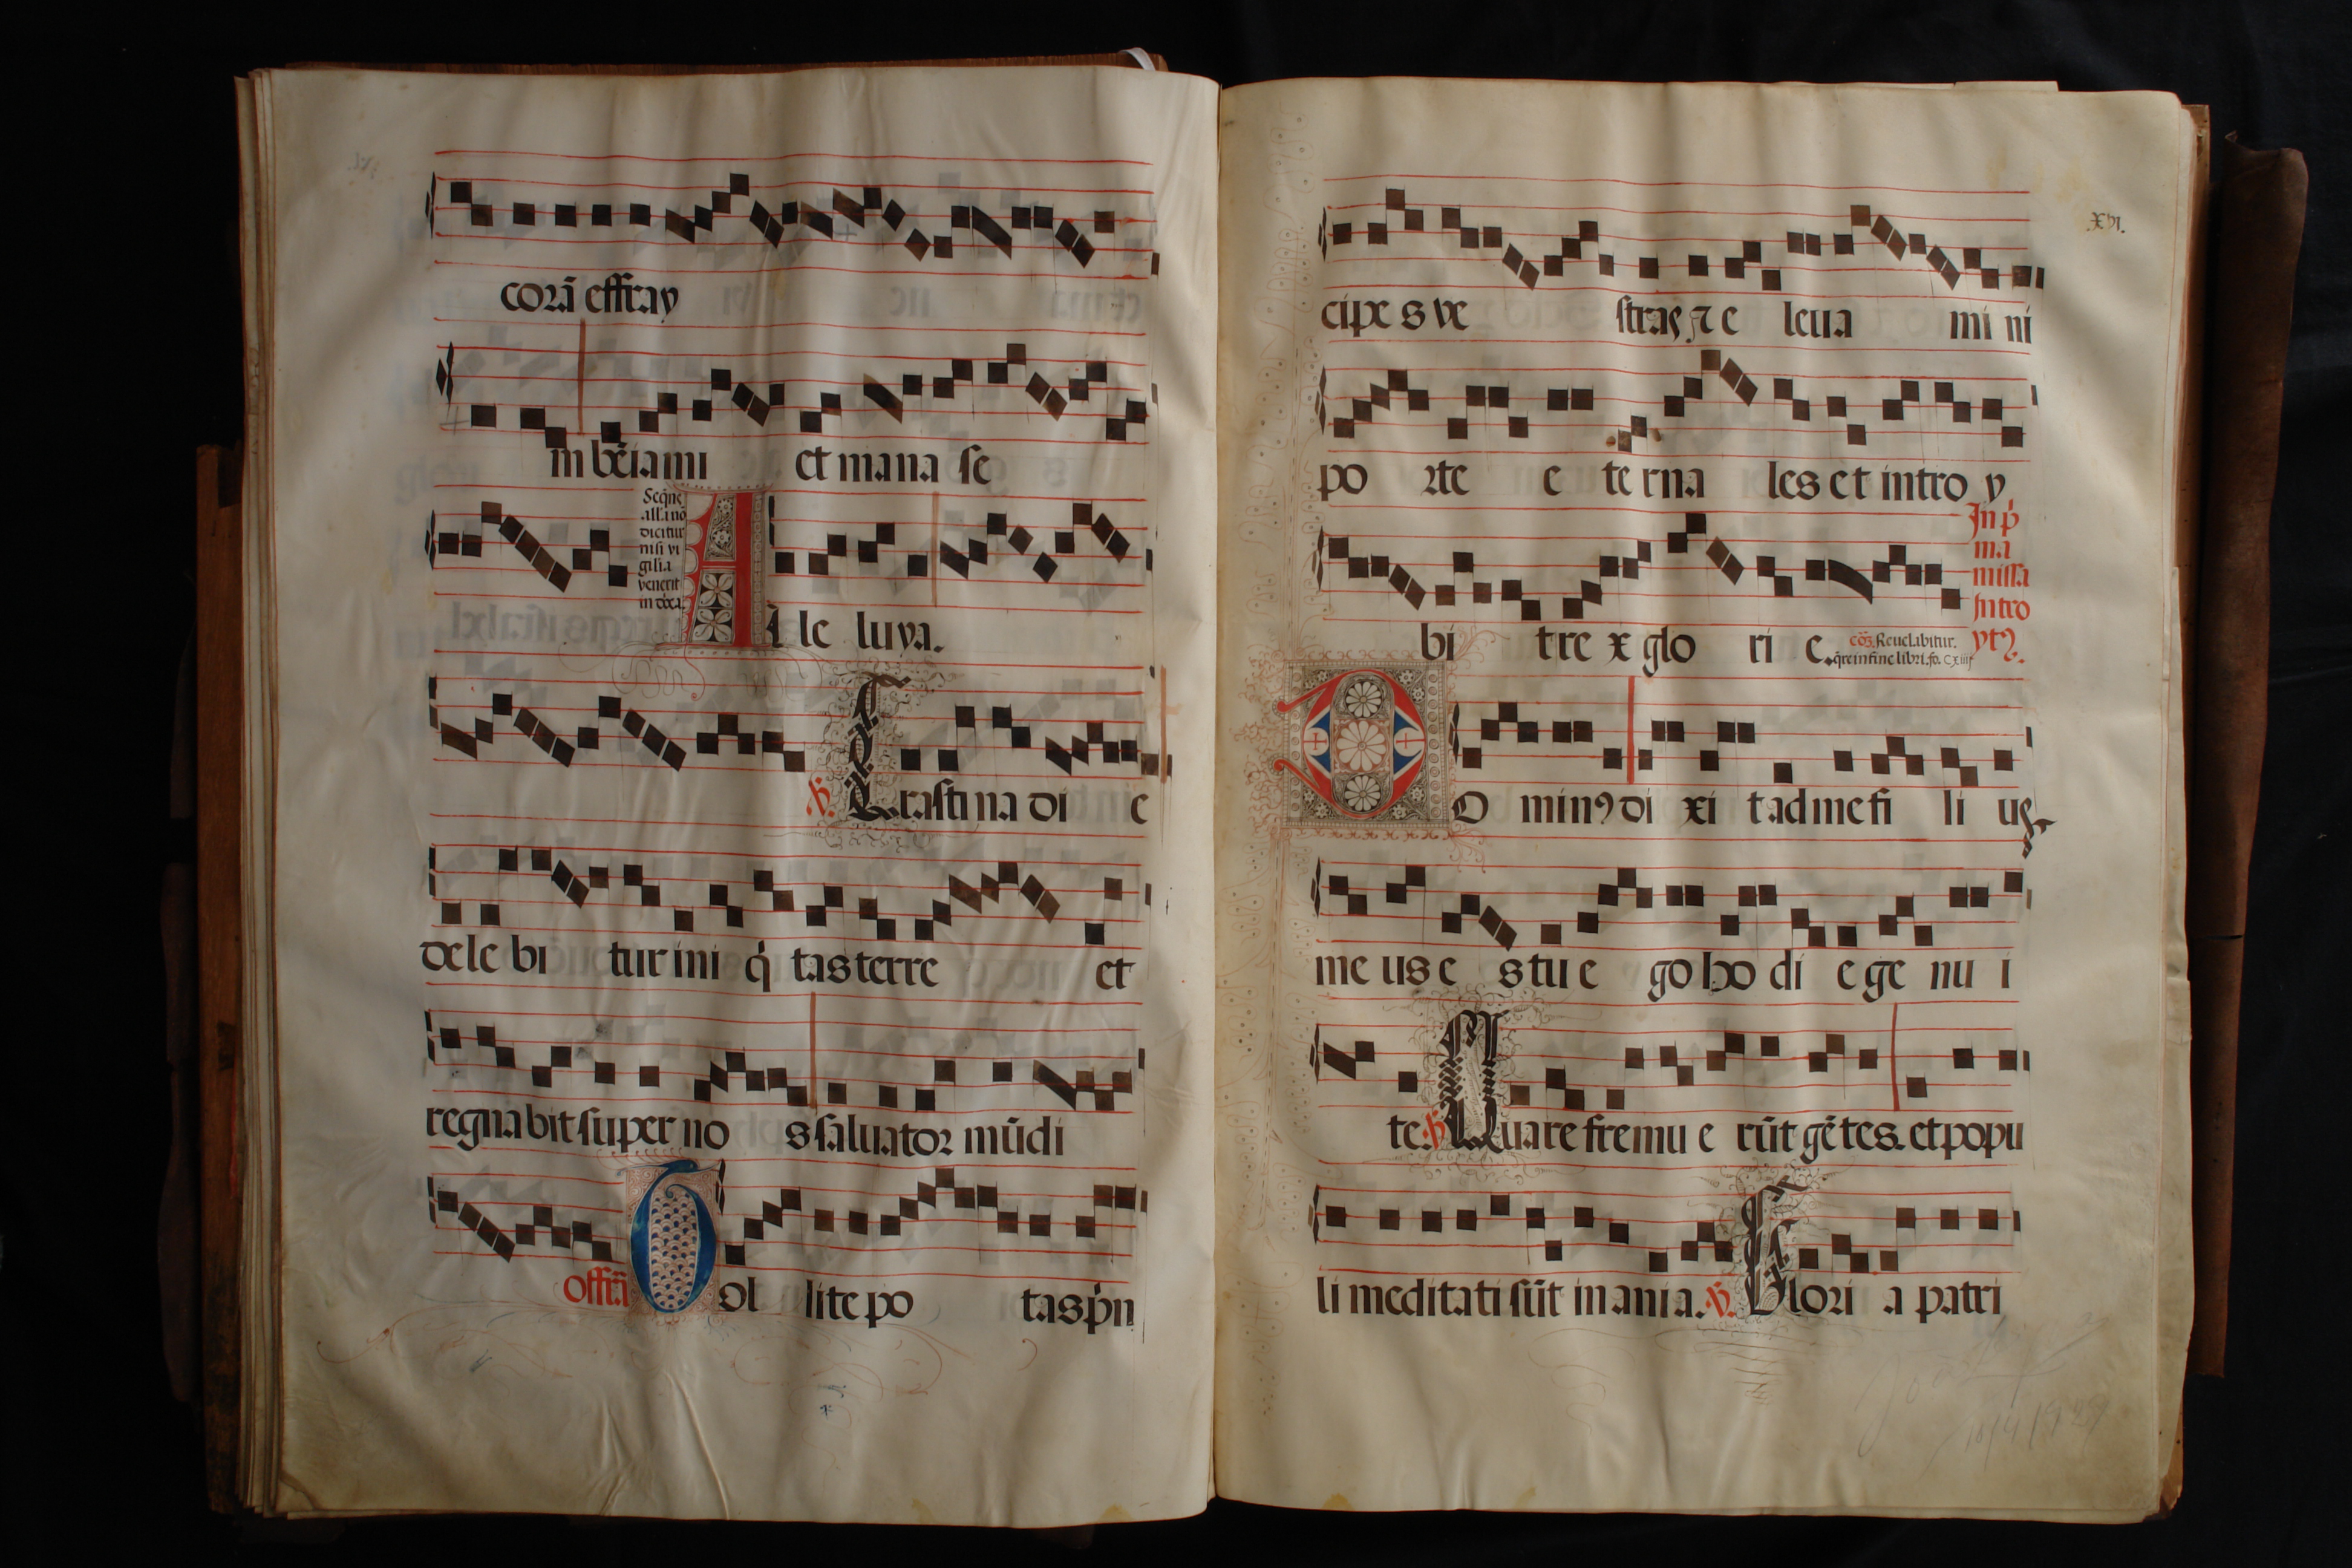 corā effray
m bēiami et mana se
Seq̄ns
all'a nō
dicitur
nisi vi
gilia
venerit
in dōca.
A le luya.
℣. Crastina di e
dele bi tur ini q̇ tas terre et
regnabit super no s saluator mūdi
Offr̄i Ol lite po tas pͥn
xvi.
cipe s ve stras ⁊ e leua mi ni
po rte e te rna les et intro y
bi t re x glo ri e.
In pͥ
ma
missa
Intro
ytꝰ.
cōꝫ. Reuelabitur.
q̄re in fine libri. fo. cxiiij
D O minꝰ di xi t ad me fi li us
me us e s tu e go ho di e ge nu i
te. ℣. Quare fremu e rūt gētes. et popu
li meditati sūt inania. ℣. Glori a patri